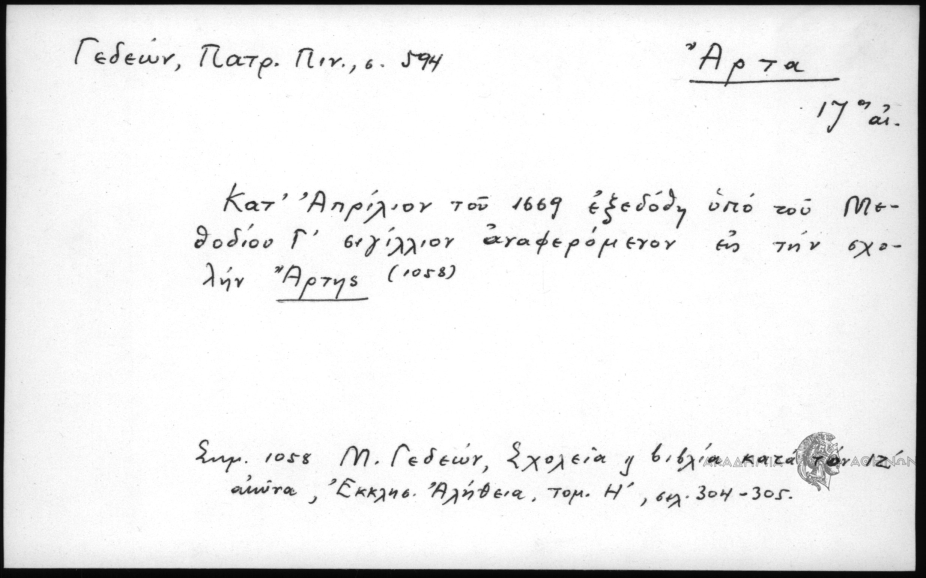 Γεδεών, Πατρ. Πιν., σ. 594
Ἄρτα
17ος αἰ.
Κατ' Ἀπρίλιον τοῦ 1669 ἐξεδόθη ὑπό τοῦ Με-
θοδίου Γ' σιγίλλιον ἀναφερόμενον εἰς τήν σχο-
λήν Ἄρτης (1058)
Σημ. 1058 Μ. Γεδεών, Σχολεῖα καὶ βιβλία κατά τόν ΙΖ'
αἰῶνα, Ἐκκλησ. Ἀλήθεια, τομ. Η', σελ. 304-305.
ΑΚΑΔΗΜΙΑ ΑΘΗΝΩΝ